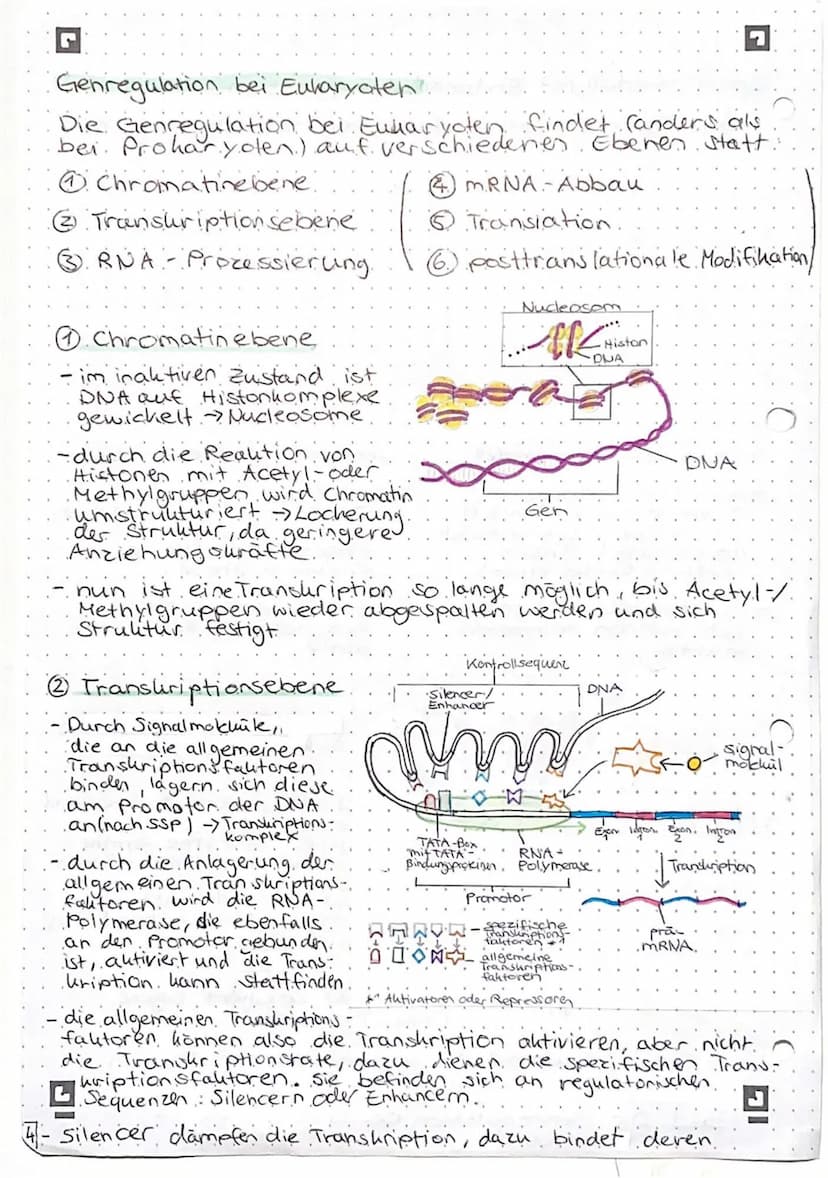 Genregulation bei Eukaryoten
Die Genregulation bei Eukaryoten findet (anders als
bei Prokaryoten) auf verschiedenen Ebenen statt:
① Chromatinebene
② Transkriptionsebene
③ RNA-Prozessierung
④ mRNA-Abbau
⑤ Translation
⑥ posttranslationale Modifikation
① Chromatinebene
- im inaktiven Zustand ist
DNA auf Histonkomplexe
gewickelt → Nucleosome
- durch die Reaktion von
Histonen mit Acetyl- oder
Methylgruppen wird Chromatin
umstrukturiert → Lockerung
der Struktur, da geringere
Anziehungskräfte
Nucleosom
Histon
DNA
DNA
Gen
- nun ist eine Transkription so lange möglich, bis Acetyl-/
Methylgruppen wieder abgespalten werden und sich
Struktur festigt
② Transkriptionsebene
- Durch Signalmoleküle,
die an die allgemeinen
Transkriptionsfaktoren
binden, lagern sich diese
am Promotor der DNA
an (nach SSP) → Transkriptions-
komplex
- durch die Anlagerung der
allgemeinen Transkriptions-
faktoren wird die RNA-
Polymerase, die ebenfalls
an den Promotor gebunden
ist, aktiviert und die Trans-
kription kann stattfinden
Kontrollsequenz
Silencer/
Enhancer
DNA
Signal-
molekül
TATA-Box
mit TATA-
Bindungsproteinen
RNA-
Polymerase
Exon 1
Intron 1
Exon 2
Intron 2
Promotor
Transkription
prä-
mRNA
spezifische
Transkriptions-
faktoren *
allgemeine
Transkriptions-
faktoren
* Aktivatoren oder Repressoren
- die allgemeinen Transkriptions-
faktoren können also die Transkription aktivieren, aber nicht
die Transkriptionsrate, dazu dienen die spezifischen Trans-
kriptionsfaktoren. Sie befinden sich an regulatorischen
Sequenzen: Silencern oder Enhancern.
4 - Silencer dämpfen die Transkription, dazu bindet deren